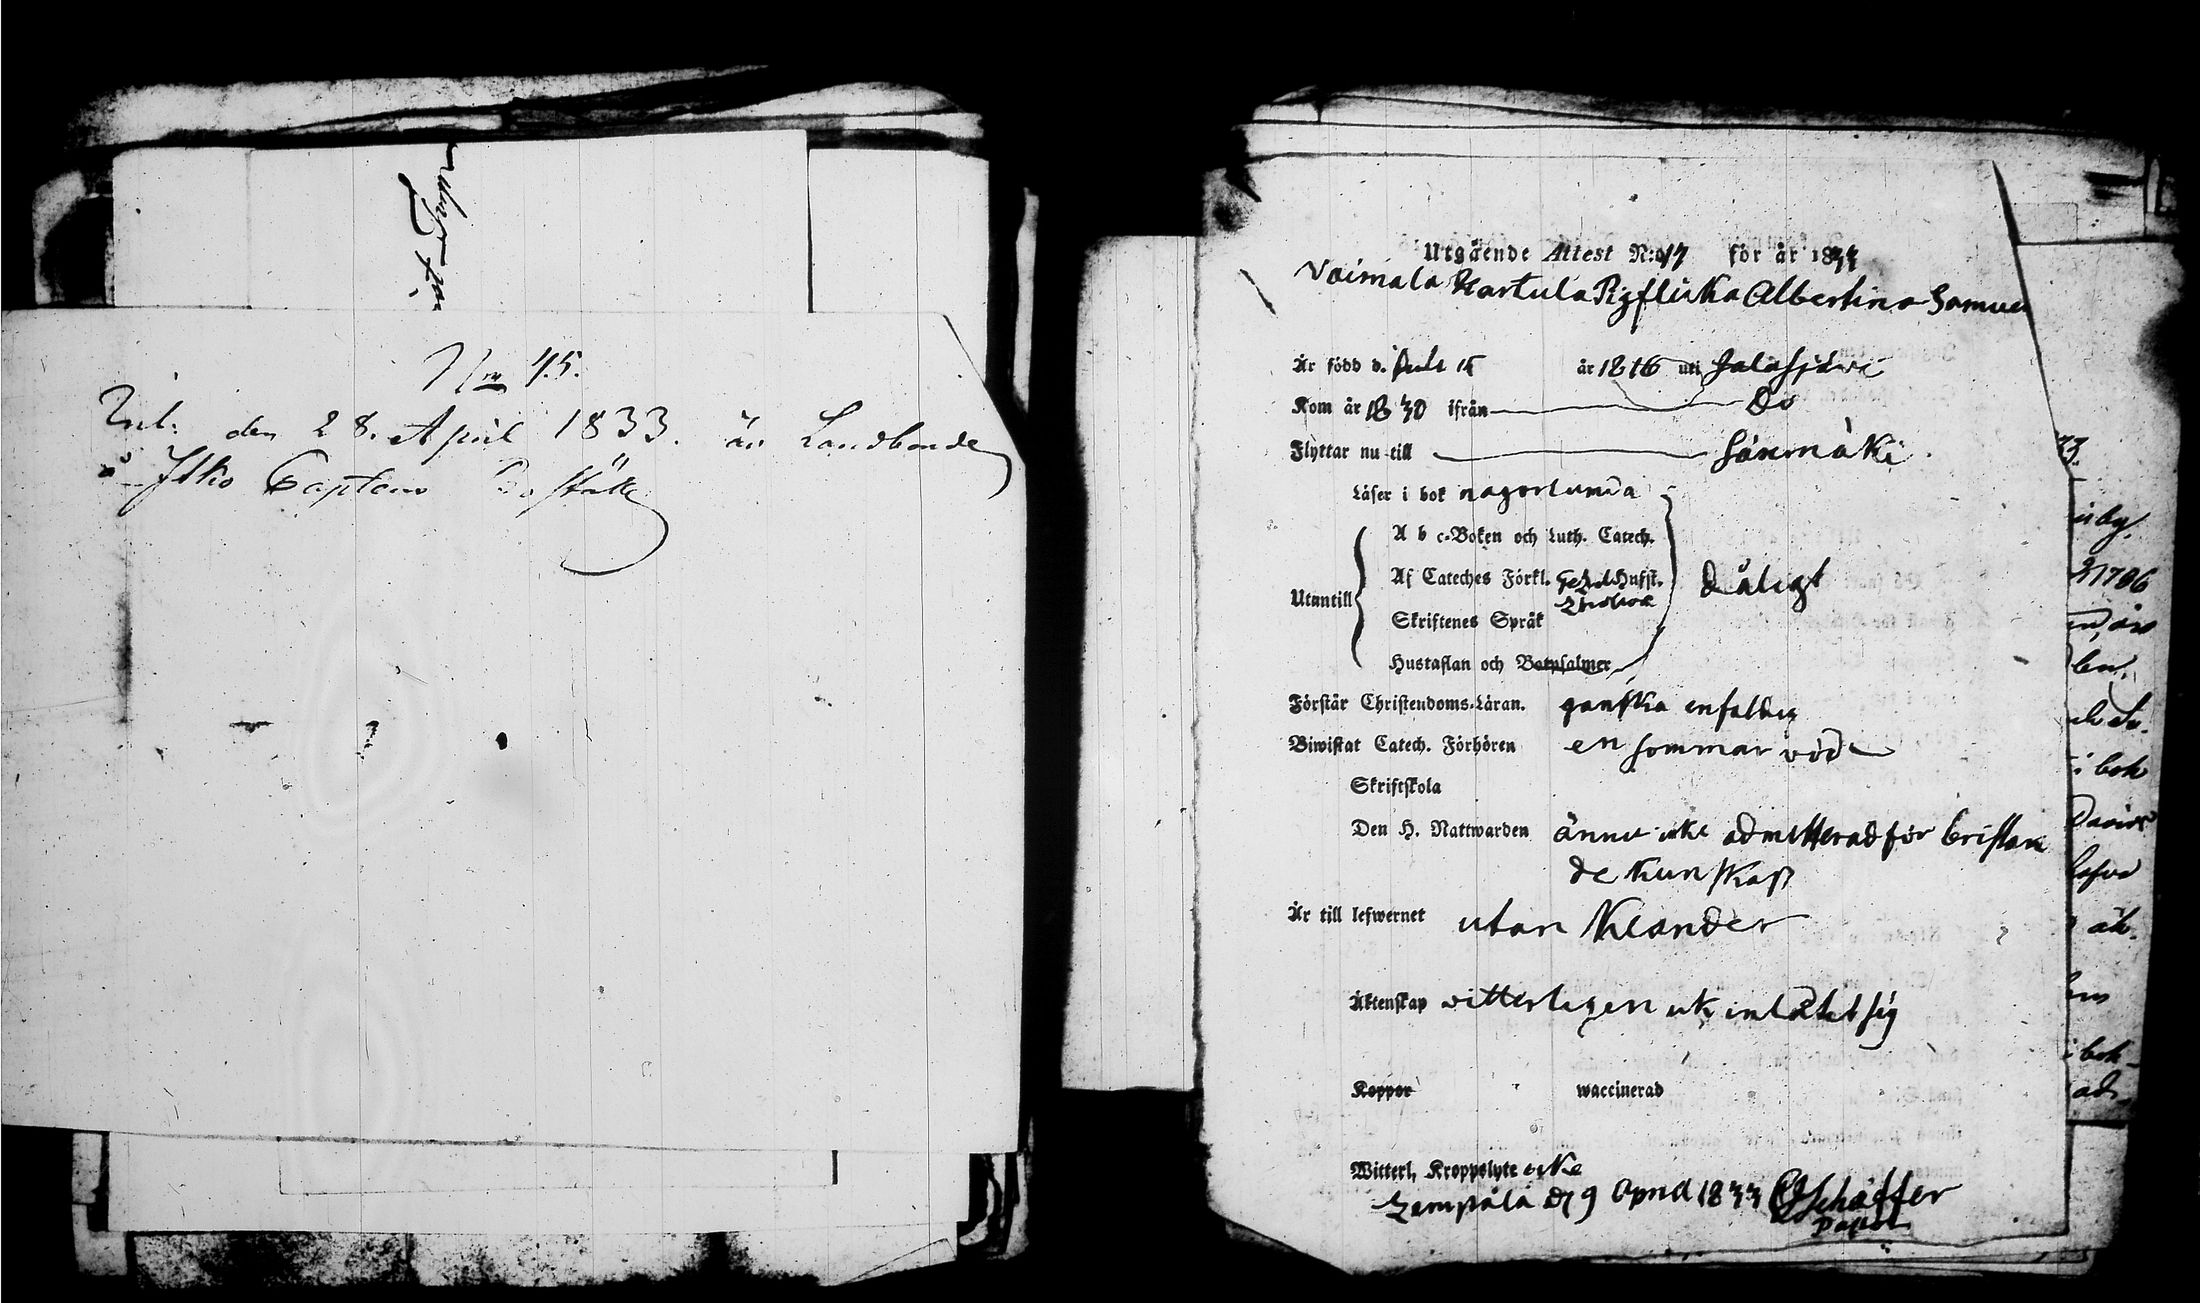 N:ro 45.
Inl: den 28. April 1833. är Landbonde
å Ilko Captens Boställe
Utgående Attest N:o 17 för år 1833
Voimala Hartula Pigflicka Albertina Samuels
Är född d. Juli 15 år 1816 uti Jalasjärvi
Kom år 1830 ifrån Do
Flyttar nu till Sänmäki
Läser i bok någorlunda
A b c-Boken och Luth. Catech.
Af Cateches Förkl. Hufst.
Utantill Dåligt
Skriftenes Språk
Hustaflan och Botpsalmer
Förstår Christendoms-Läran. ganska enfaldig
Biwistat Catech. Förhören en sommar
Skriftskola
Den H. Nattwarden ännu icke admitterad för bristan
de kunskap
Är till lefwernet utan klander
Äktenskap vitterligen ick inlåtit sig
Koppor waccinerad
Witterl. Kroppslyte icke
Lempälä d 9 April 1833 Schäffer
Pastor
33.
1786
i bok
äk.
i bok
ad